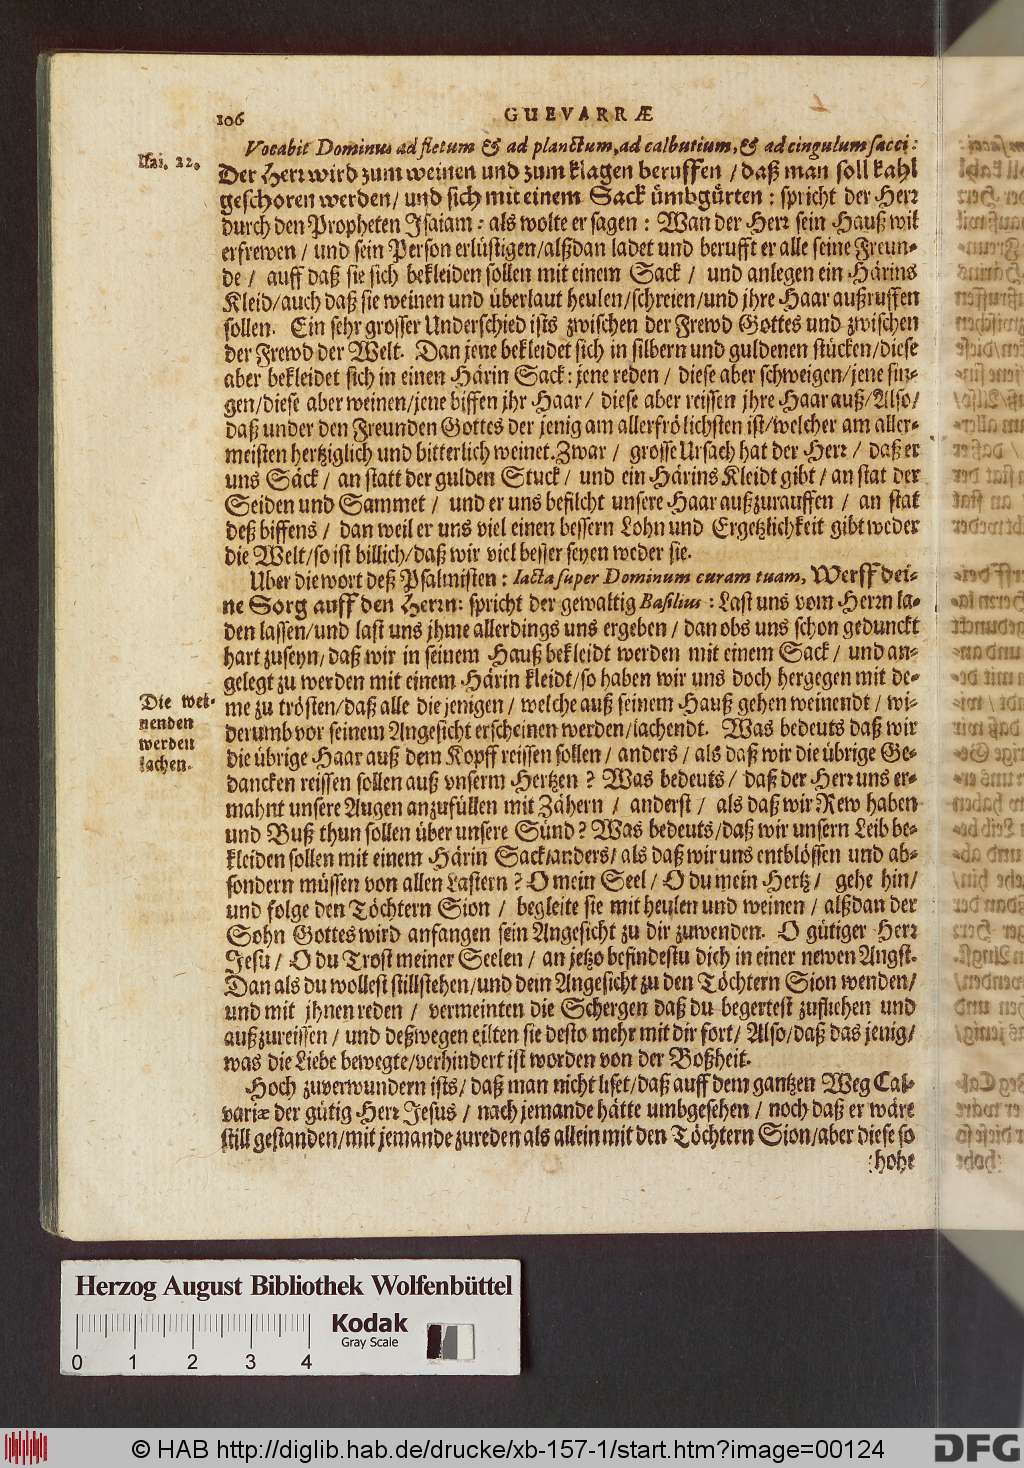 106
GUEVARRÆ
Isai. 22.
Vocabit Dominus ad fletum & ad planctum, ad calbutium, & ad cingulum sacci:
Der Herr wird zum weinen und zum klagen beruffen / daß man soll kahl
geschoren werden / und sich mit einem Sack ümbgürten: spricht der Herr
durch den Propheten Isaiam: als wolte er sagen: Wan der Herr sein Hauß wil
erfrewen / und sein Person erlüstigen / alßdan ladet und berufft er alle seine Freun-
de / auff daß sie sich bekleiden sollen mit einem Sack / und anlegen ein Härins
Kleid / auch daß sie weinen und überlaut heulen / schreien / und jhre Haar außruffen
sollen. Ein sehr grosser Underschied ists zwischen der Frewd Gottes und zwischen
der Frewd der Welt. Dan jene bekleidet sich in silbern und guldenen stücken / diese
aber bekleidet sich in einen Härin Sack: jene reden / diese aber schweigen / jene sin-
gen / diese aber weinen / jene biffen jhr Haar / diese aber reissen jhre Haar auß / Also /
daß under den Freunden Gottes der jenig am allerfrölichsten ist / welcher am aller-
meisten hertziglich und bitterlich weinet. Zwar / grosse Ursach hat der Herr / daß er
uns Säck / an statt der gulden Stuck / und ein Härins Kleidt gibt / an stat der
Seiden und Sammet / und er uns befilcht unsere Haar außzurauffen / an stat
deß biffens / dan weil er uns viel einen bessern Lohn und Ergetzlichkeit gibt weder
die Welt / so ist billich / daß wir viel besser seyen weder sie.
Uber die wort deß Psalmisten: Iacta super Dominum curam tuam, Werff dei-
ne Sorg auff den Herrn: spricht der gewaltig Basilius: Last uns vom Herrn la-
den lassen / und last uns jhme allerdings uns ergeben / dan obs uns schon gedunckt
hart zuseyn / daß wir in seinem Hauß bekleidt werden mit einem Sack / und an-
gelegt zu werden mit einem Härin kleidt / so haben wir uns doch hergegen mit de-
Die wei-
nenden
werden
lachen.
me zu trösten / daß alle die jenigen / welche auß seinem Hauß gehen weinendt / wi-
derumb vor seinem Angesicht erscheinen werden / lachendt. Was bedeuts daß wir
die übrige Haar auß dem Kopff reissen sollen / anders / als daß wir die übrige Ge-
dancken reissen sollen auß vnserm Hertzen? Was bedeuts / daß der Herr uns er-
mahnt unsere Augen anzufüllen mit Zähern / anderst / als daß wir Rew haben
und Buß thun sollen über unsere Sünd? Was bedeuts / daß wir unsern Leib be-
kleiden sollen mit einem Härin Sack / anders / als daß wir uns entblössen und ab-
sondern müssen von allen Lastern? O mein Seel / O du mein Hertz / gehe hin /
und folge den Töchtern Sion / begleite sie mit heulen und weinen / alßdan der
Sohn Gottes wird anfangen sein Angesicht zu dir zuwenden. O gütiger Herr
Jesu / O du Trost meiner Seelen / an jetzo befindestu dich in einer newen Angst.
Dan als du wollest stillstehen / und dein Angesicht zu den Töchtern Sion wenden /
und mit jhnen reden / vermeinten die Schergen daß du begertest zufliehen und
außzureissen / und deßwegen eilten sie desto mehr mit dir fort / Also / daß das jenig /
was die Liebe bewegte / verhindert ist worden von der Boßheit.
Hoch zuverwundern ists / daß man nicht liset / daß auff dem gantzen Weg Cal-
variæ der gütig Herr Jesus / nach jemande hätte umbgesehen / noch daß er wäre
still gestanden / mit jemande zureden als allein mit den Töchtern Sion / aber diese so
hohe
Herzog August Bibliothek Wolfenbüttel
Kodak
Gray Scale
0 1 2 3 4
© HAB http://diglib.hab.de/drucke/xb-157-1/start.htm?image=00124
DFG